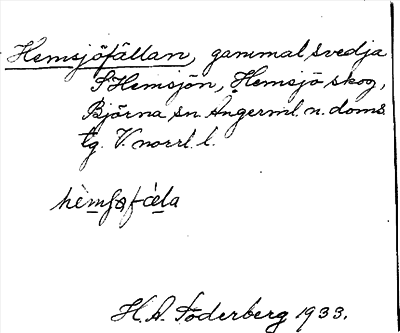 Hemsjöfällan, gammal svedja
S Hemsjön, Hemsjö skog,
Björna sn. Ångerml. n. doms.
tg. V. norrl. l.
H. A. Söderberg 1933.